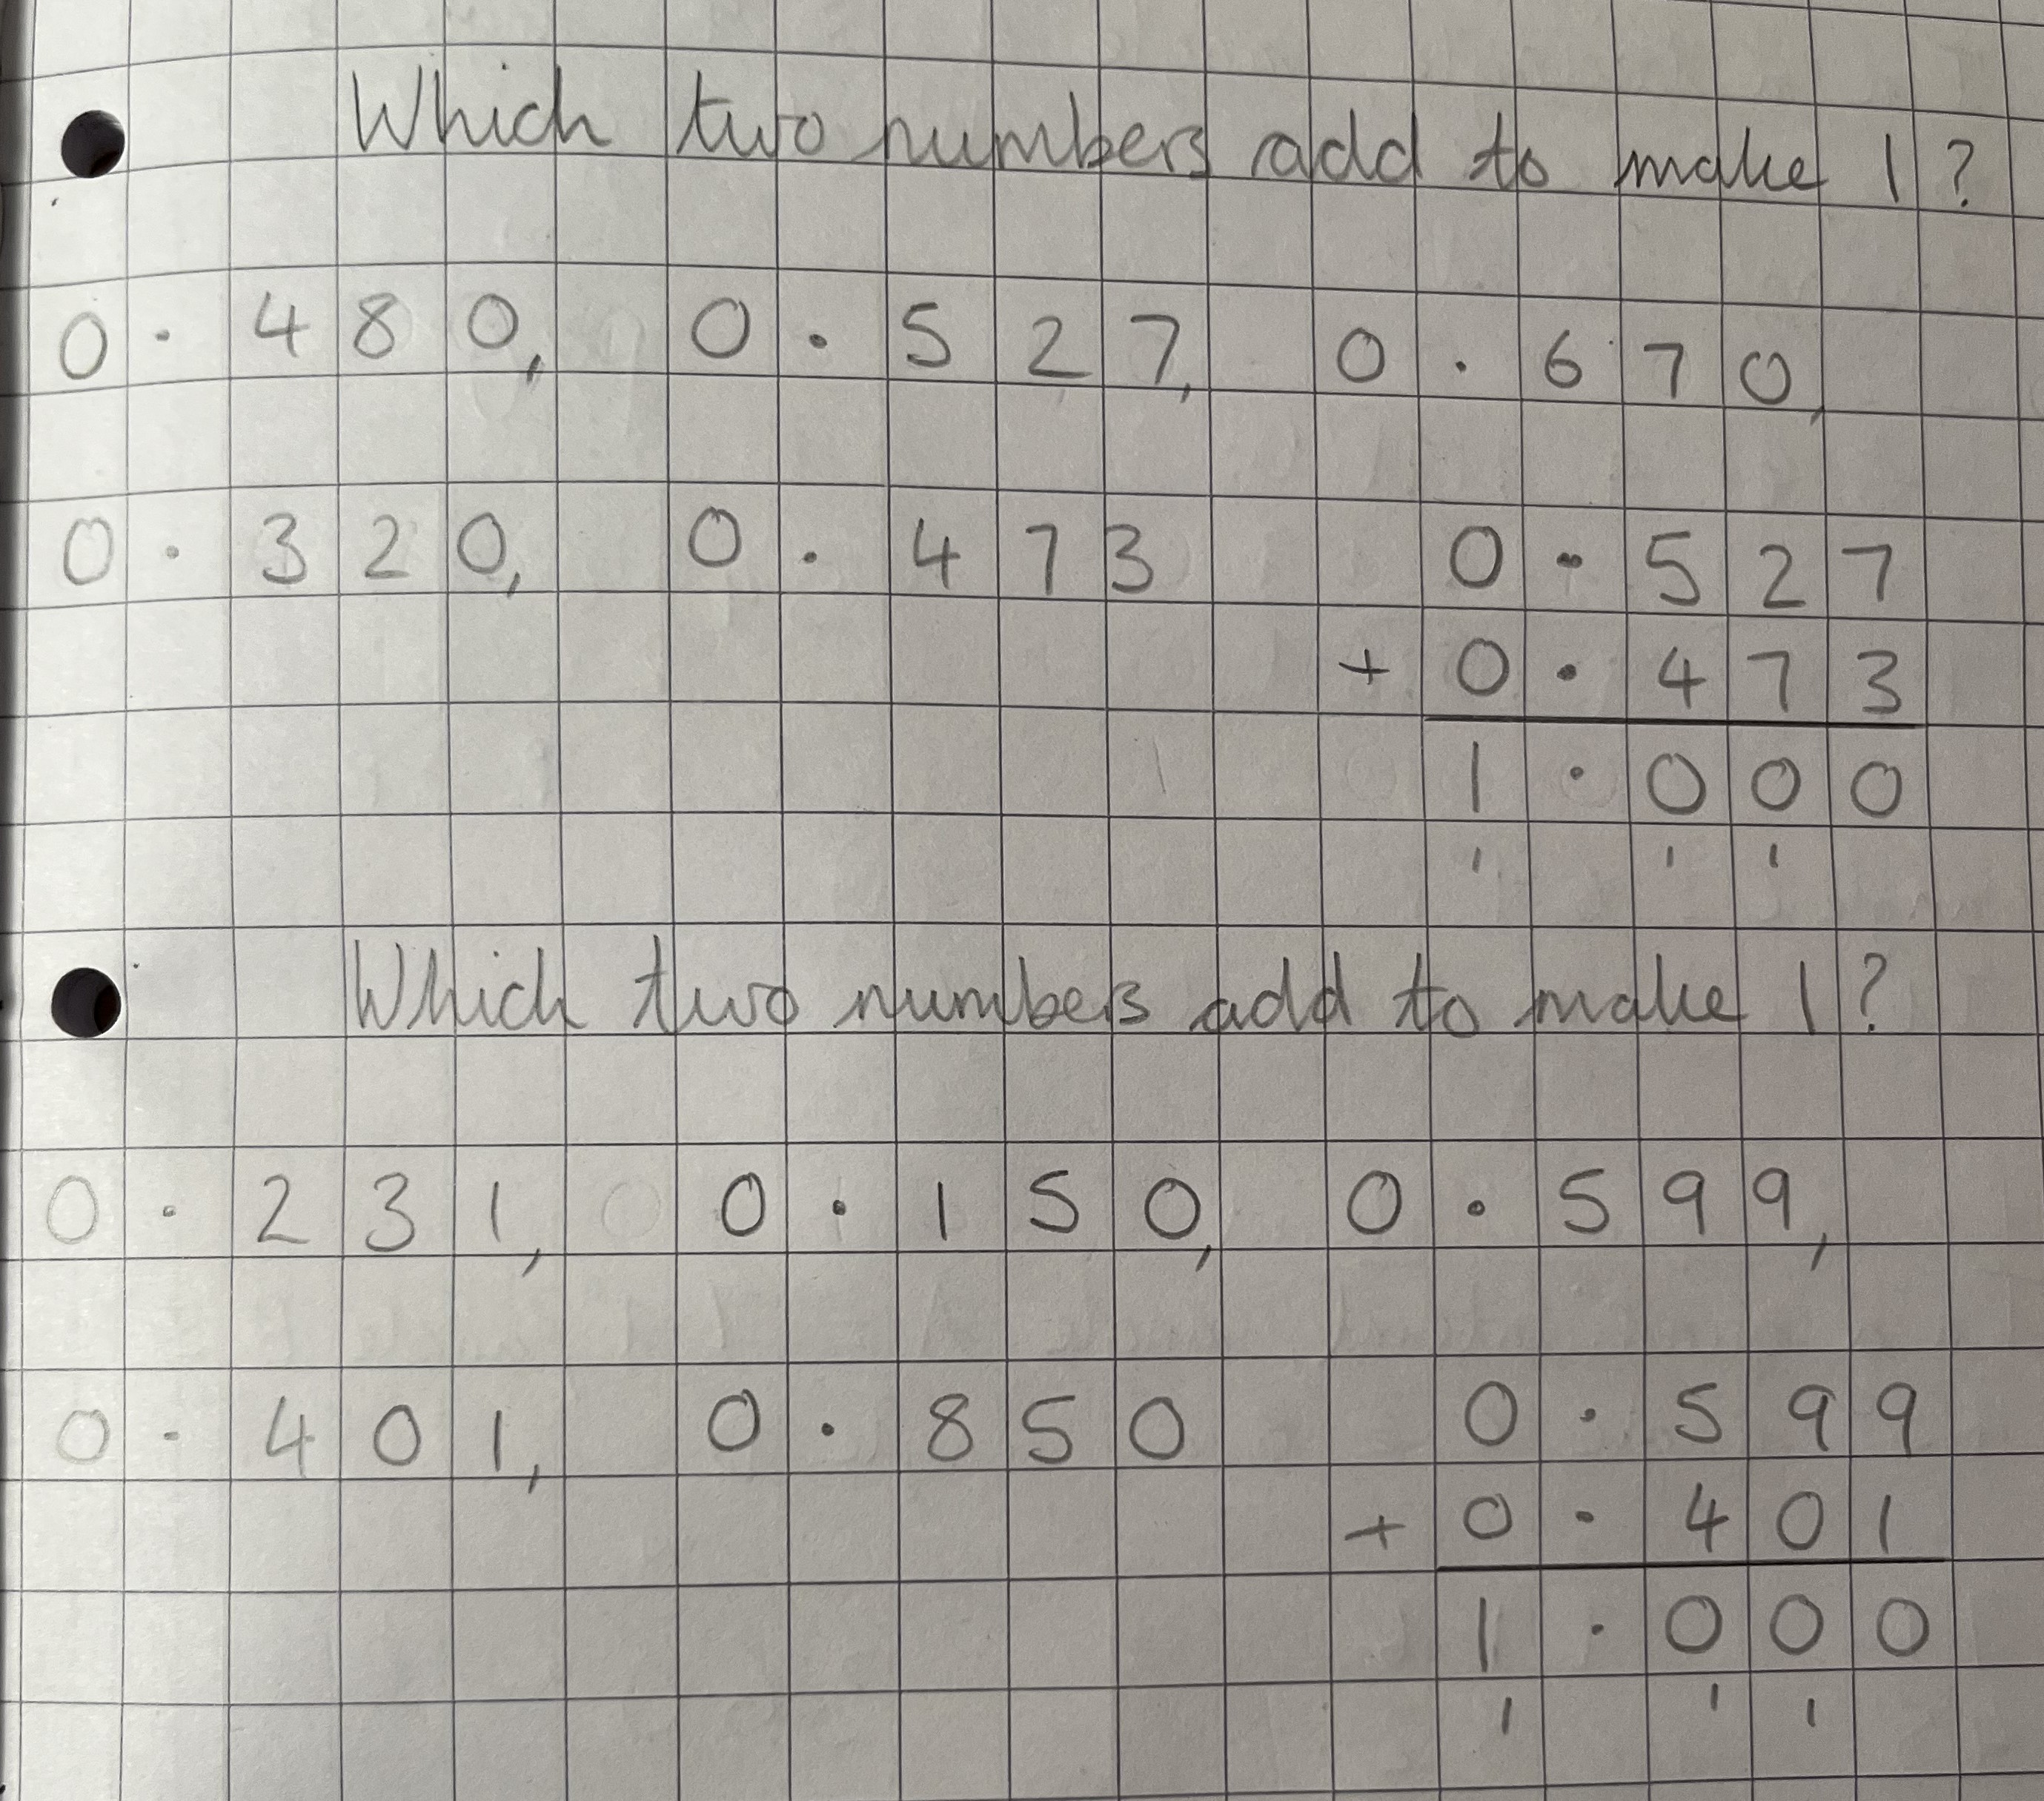 Which two numbers add to make 1?
0.480, 0.527, 0.670,
0.320, 0.473
0.527
+ 0.473
1.000
1 1 1
Which two numbers add to make 1?
0.231, 0.150, 0.599,
0.401, 0.850
0.599
+ 0.401
1.000
1 1 1